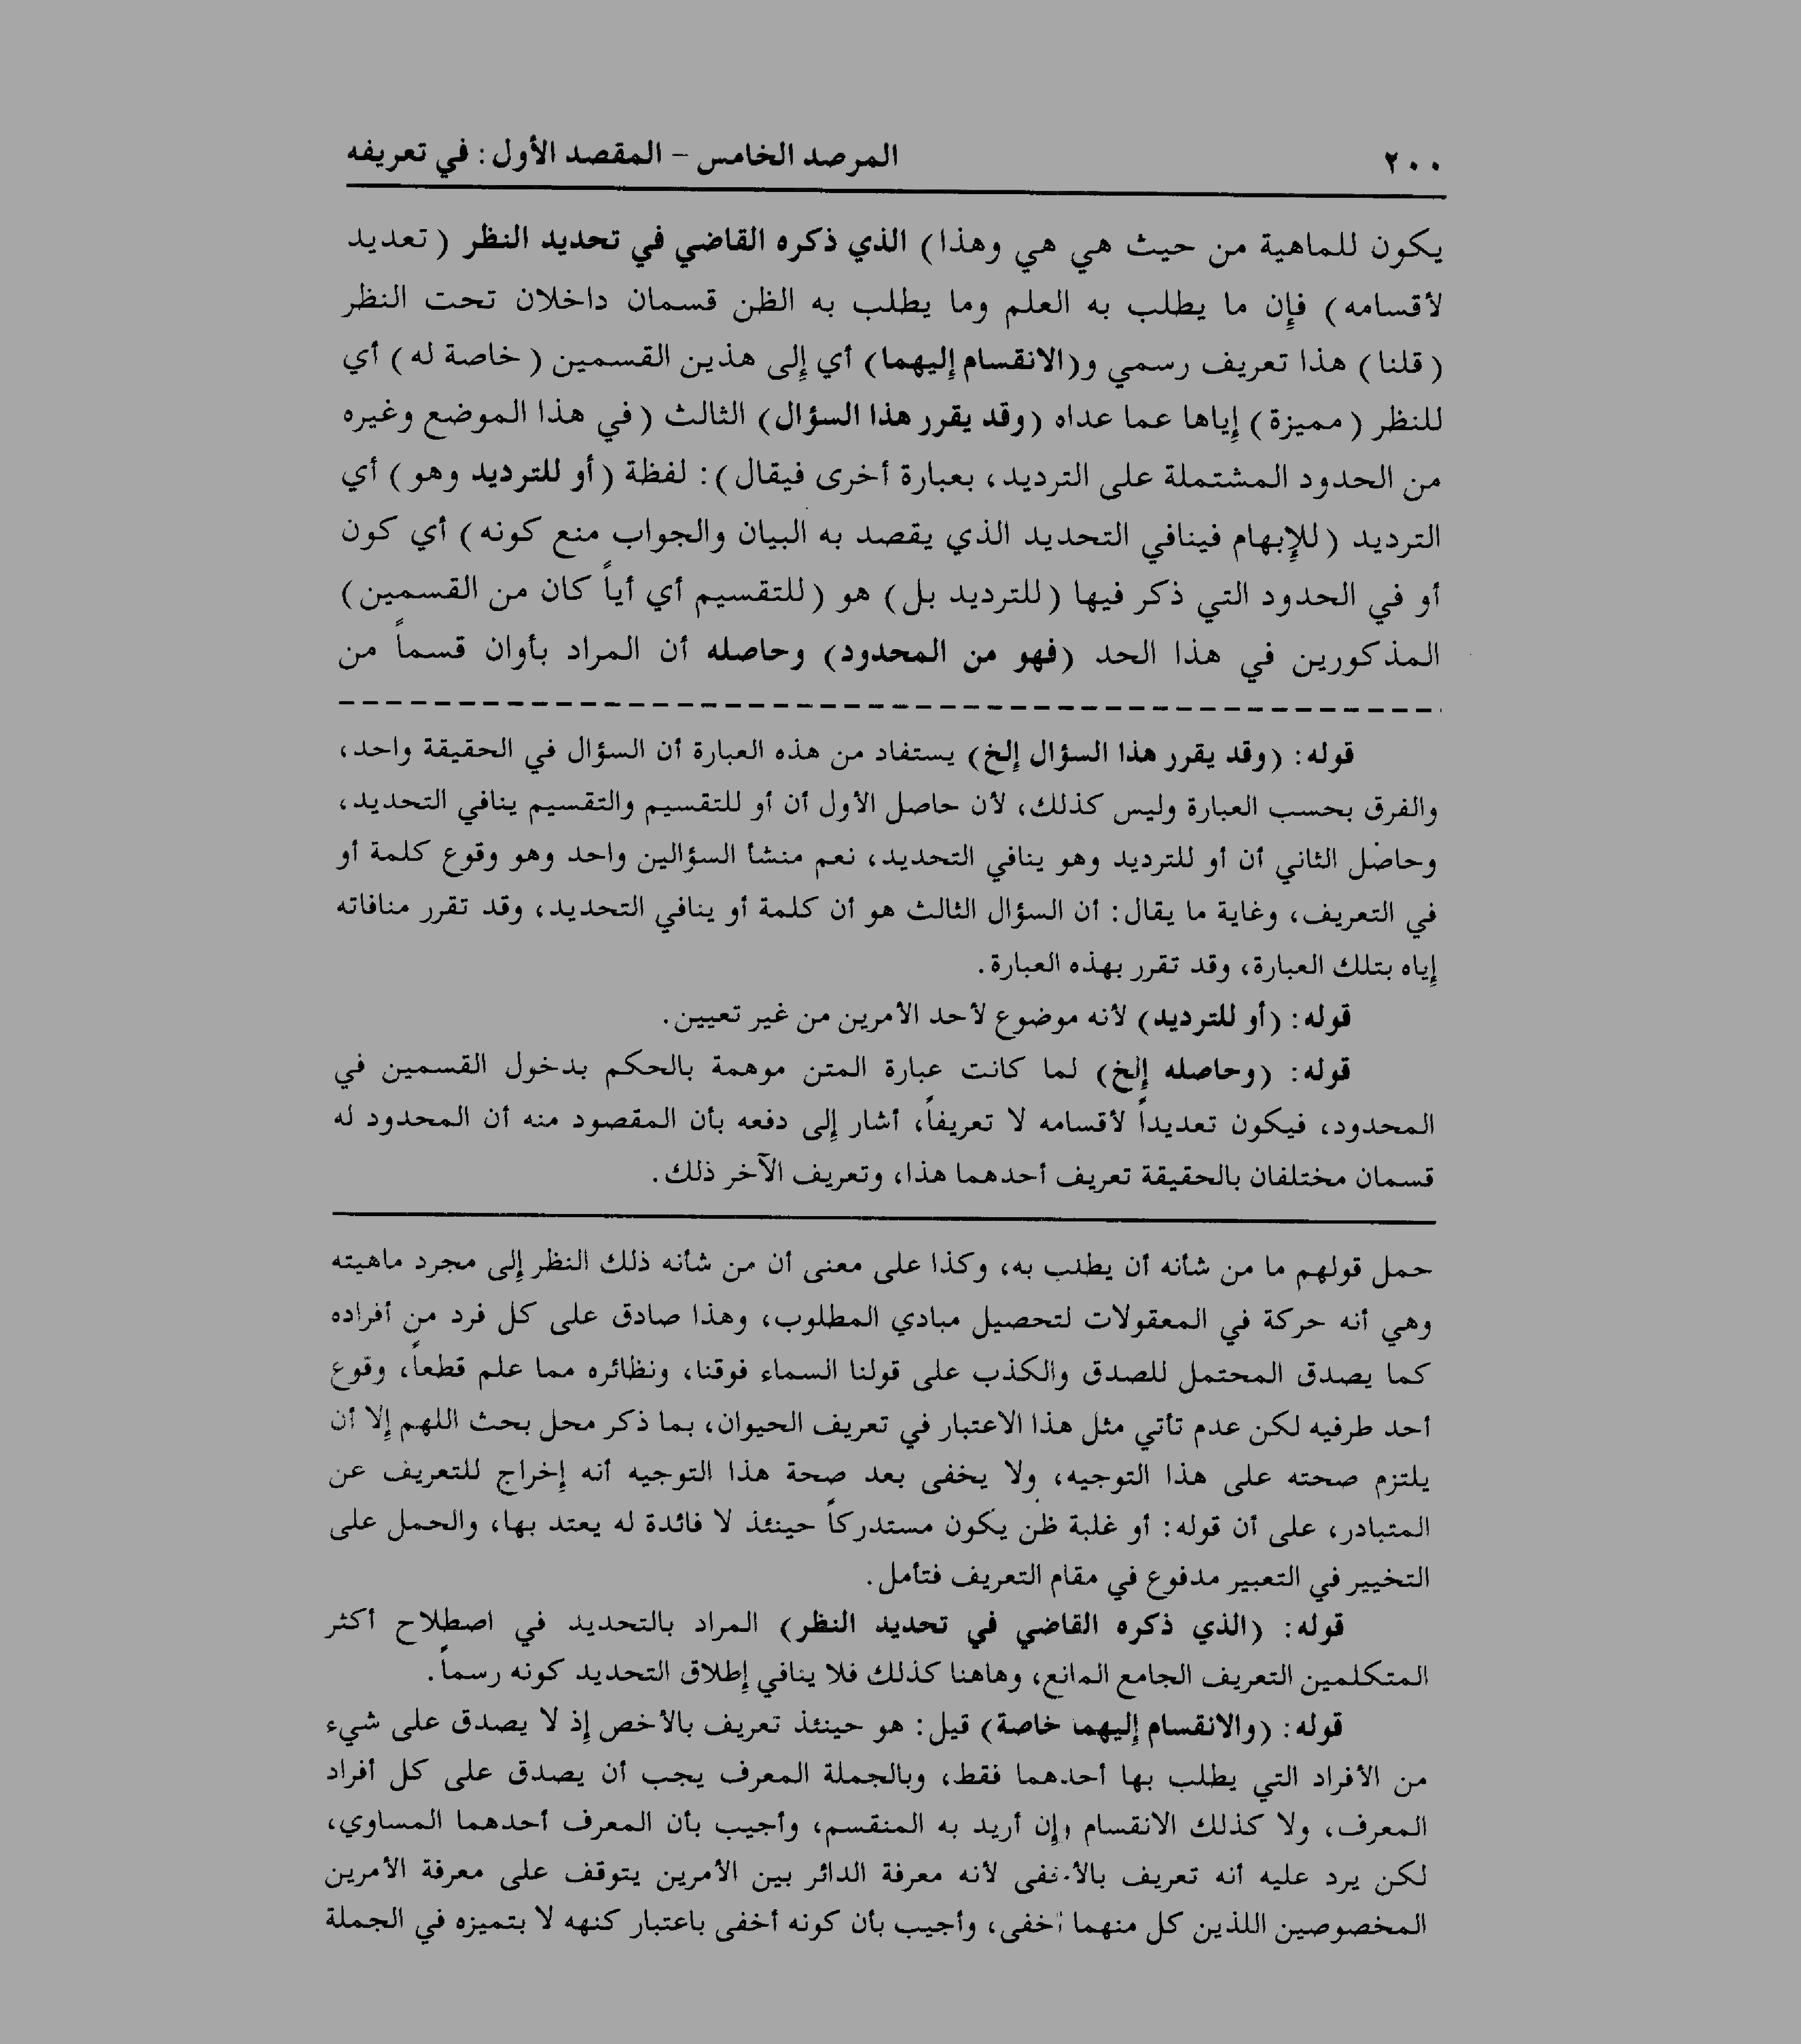 ٢٠٠ المرصد الخامس – المقصد الأول: في تعريفه
يكون للماهية من حيث هي هي وهذا) الذي ذكره القاضي في تحديد النظر (تعديد
لأقسامه) فإن ما يطلب به العلم وما يطلب به الظن قسمان داخلان تحت النظر
(قلنا) هذا تعريف رسمي و(الانقسام إليهما) أي إلى هذين القسمين (خاصة له) أي
للنظر (مميزة) إياها عما عداه (وقد يقرر هذا السؤال) الثالث (في هذا الموضع وغيره
من الحدود المشتملة على الترديد، بعبارة أخرى فيقال): لفظة (أو للترديد وهو) أي
الترديد (للإبهام فينافي التحديد الذي يقصد به البيان والجواب منع كونه) أي كون
أو في الحدود التي ذكر فيها (للترديد بل) هو (للتقسيم أي أياً كان من القسمين)
المذكورين في هذا الحد (فهو من المحدود) وحاصله أن المراد بأوان قسماً من
قوله: (وقد يقرر هذا السؤال إلخ) يستفاد من هذه العبارة أن السؤال في الحقيقة واحد،
والفرق بحسب العبارة وليس كذلك، لأن حاصل الأول أن أو للتقسيم والتقسيم ينافي التحديد،
وحاصل الثاني أن أو للترديد وهو ينافي التحديد، نعم منشأ السؤالين واحد وهو وقوع كلمة أو
في التعريف، وغاية ما يقال: أن السؤال الثالث هو أن كلمة أو ينافي التحديد، وقد تقرر منافاته
إياه بتلك العبارة، وقد تقرر بهذه العبارة.
قوله: (أو للترديد) لأنه موضوع لأحد الأمرين من غير تعيين.
قوله: (وحاصله إلخ) لما كانت عبارة المتن موهمة بالحكم بدخول القسمين في
المحدود، فيكون تعديداً لأقسامه لا تعريفاً، أشار إلى دفعه بأن المقصود منه أن المحدود له
قسمان مختلفان بالحقيقة تعريف أحدهما هذا، وتعريف الآخر ذلك.
حمل قولهم ما من شأنه أن يطلب به، وكذا على معنى أن من شأنه ذلك النظر إلى مجرد ماهيته
وهي أنه حركة في المعقولات لتحصيل مبادي المطلوب، وهذا صادق على كل فرد من أفراده
كما يصدق المحتمل للصدق والكذب على قولنا السماء فوقنا، ونظائره مما علم قطعاً، وقوع
أحد طرفيه لكن عدم تأتي مثل هذا الاعتبار في تعريف الحيوان، بما ذكر محل بحث اللهم إلا أن
يلتزم صحته على هذا التوجيه، ولا يخفى بعد صحة هذا التوجيه أنه إخراج للتعريف عن
المتبادر، على أن قوله: أو غلبة ظن يكون مستدركاً حينئذ لا فائدة له يعتد بها، والحمل على
التخيير في التعبير مدفوع في مقام التعريف فتأمل.
قوله: (الذي ذكره القاضي في تحديد النظر) المراد بالتحديد في اصطلاح أكثر
المتكلمين التعريف الجامع المانع، وهاهنا كذلك فلا ينافي إطلاق التحديد كونه رسماً.
قوله: (والانقسام إليهما خاصة) قيل: هو حينئذ تعريف بالأخص إذ لا يصدق على شيء
من الأفراد التي يطلب بها أحدهما فقط، وبالجملة المعرف يجب أن يصدق على كل أفراد
المعرف، ولا كذلك الانقسام وإن أريد به المنقسم، وأجيب بأن المعرف أحدهما المساوي،
لكن يرد عليه أنه تعريف بالأخفى لأنه معرفة الدائر بين الأمرين يتوقف على معرفة الأمرين
المخصوصين اللذين كل منهما أخفى، وأجيب بأن كونه أخفى باعتبار كنهه لا بتميزه في الجملة